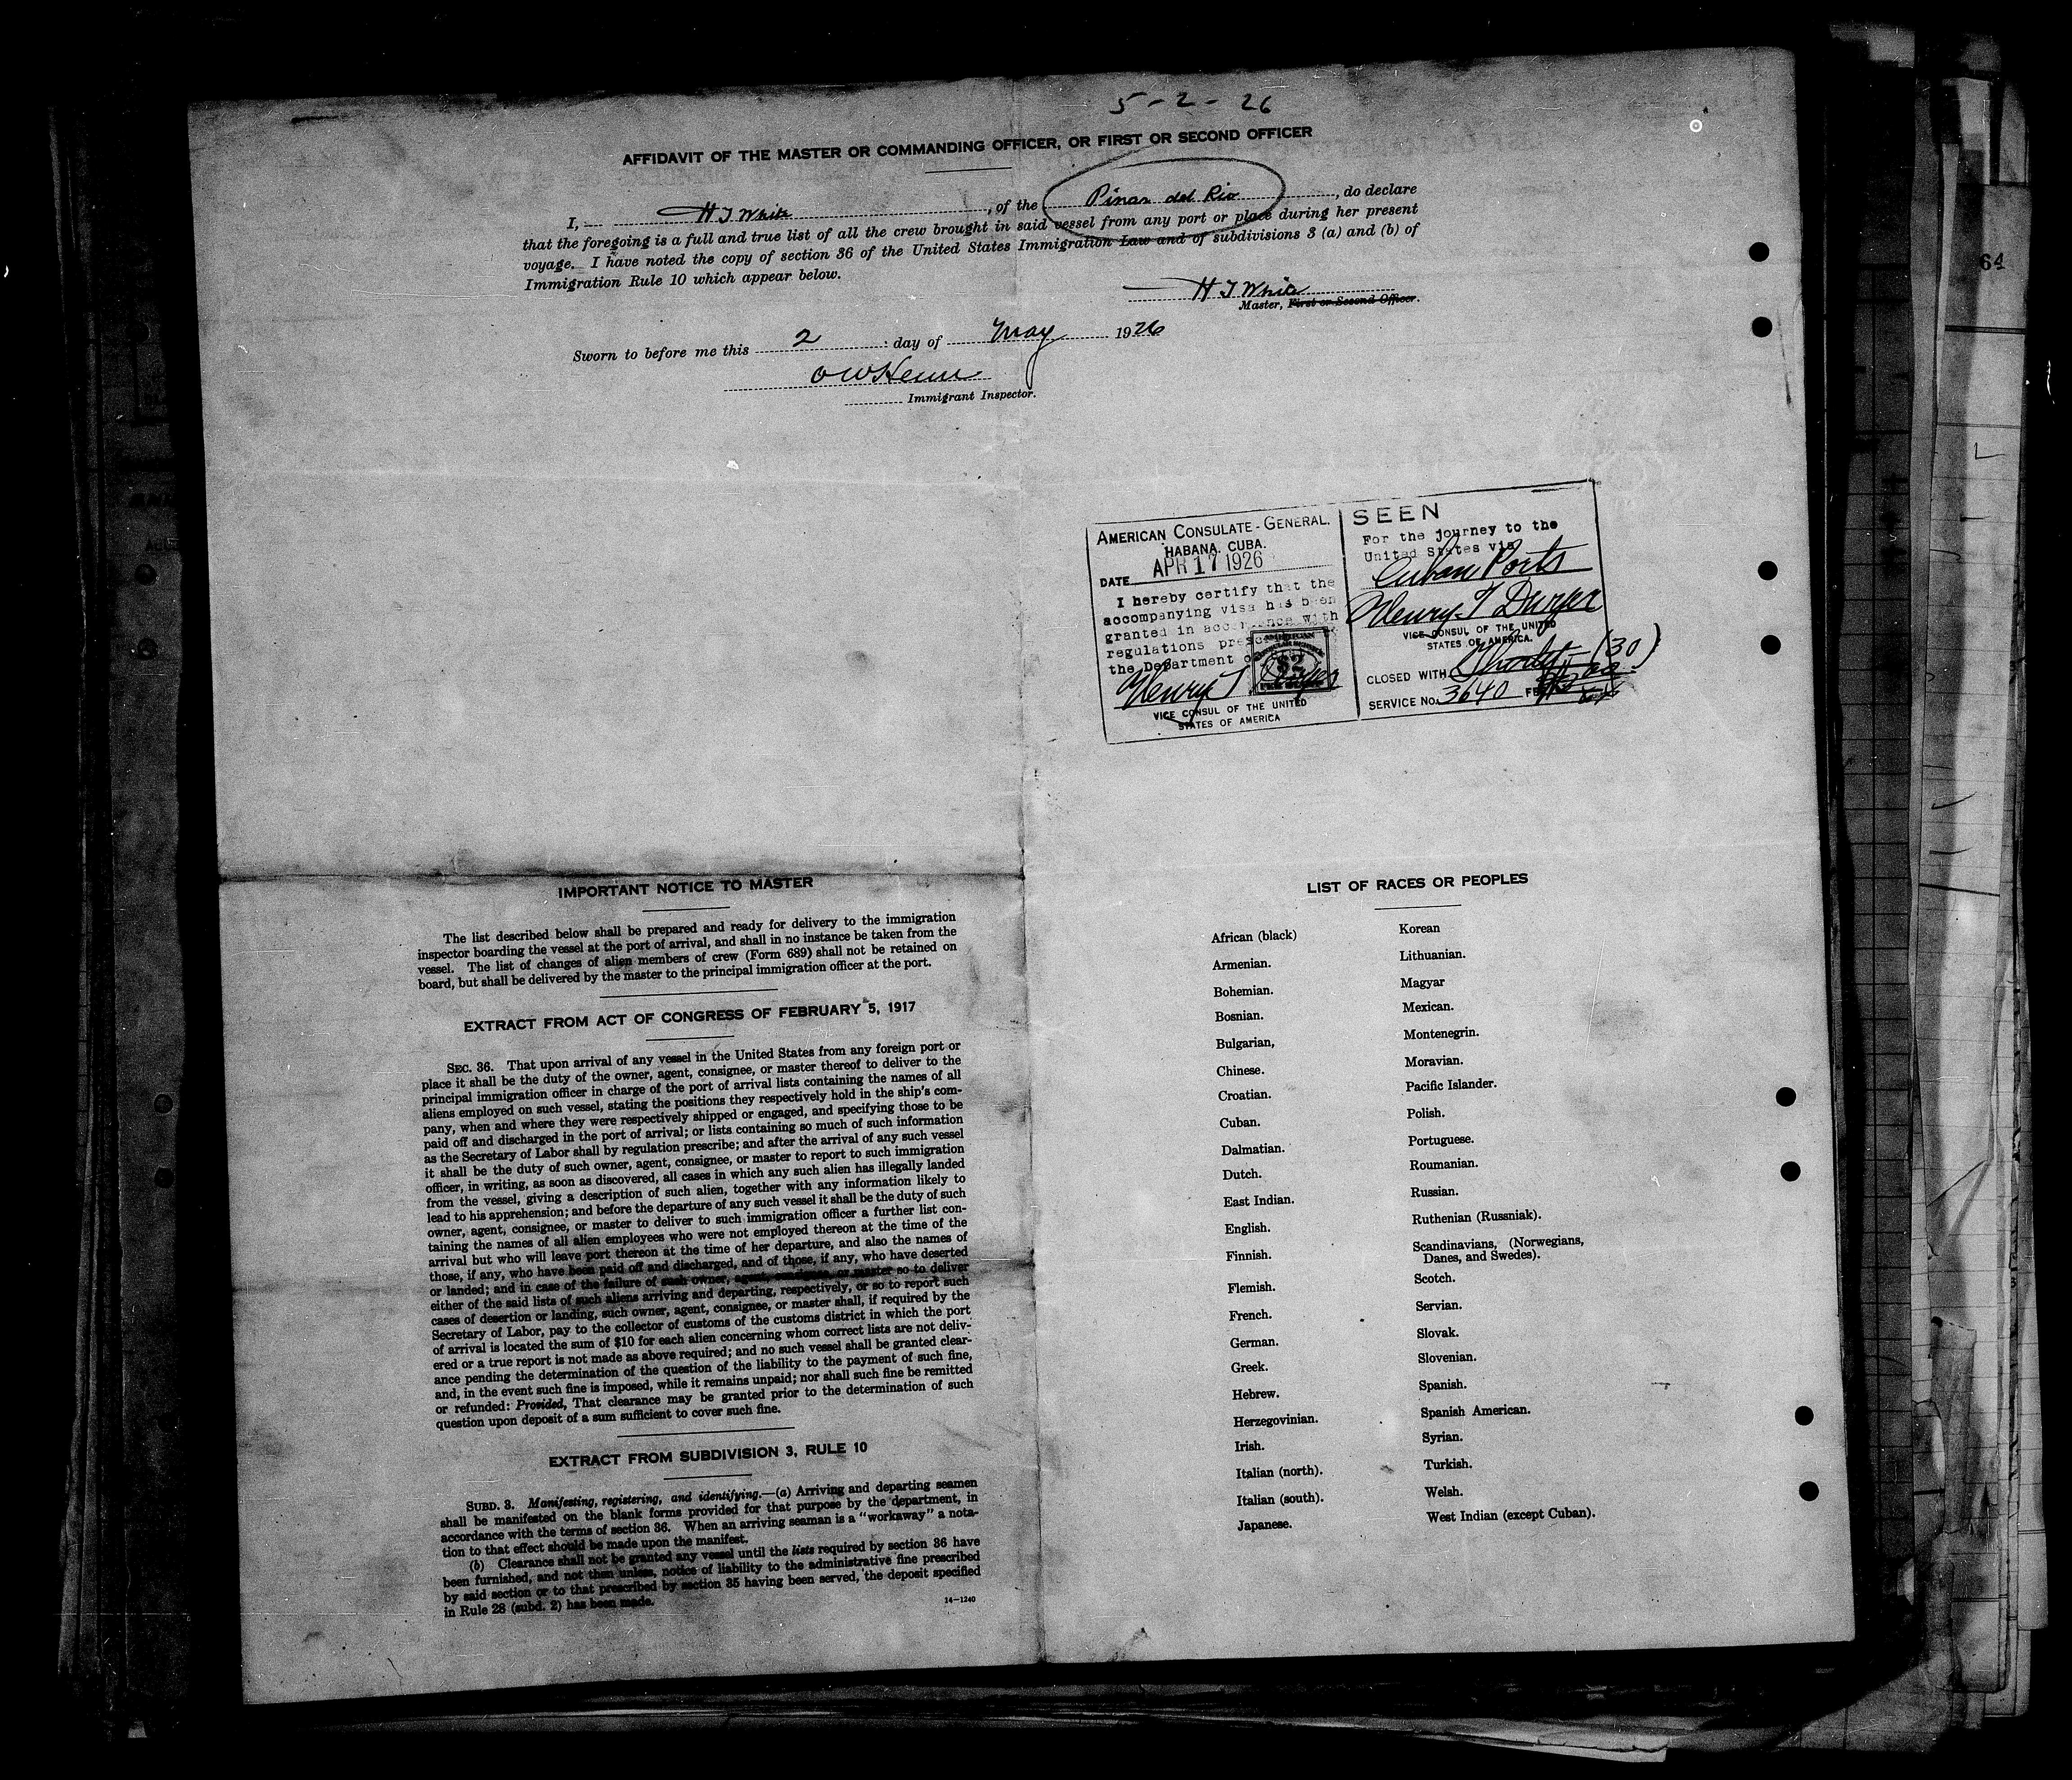 5-2-26
AFFIDAVIT OF THE MASTER OR COMMANDING OFFICER, OR FIRST OR SECOND OFFICER
I, H J White, of the Pinar del Rio, do declare
that the foregoing is a full and true list of all the crew brought in said vessel from any port or place during her present
voyage. I have noted the copy of section 36 of the United States Immigration Law and of subdivisions 3 (a) and (b) of
Immigration Rule 10 which appear below.
H J White
Master, First or Second Officer.
Sworn to before me this 2 day of May 1926
Immigrant Inspector.
64
AMERICAN CONSULATE-GENERAL,
HABANA, CUBA.
DATE APR 17 1926
I hereby certify that the
accompanying visa has been
granted in accordance with
regulations
the Department of
Henry T Dwyer
VICE CONSUL OF THE UNITED
STATES OF AMERICA
$2
SEEN
For the journey to the
United States via
Cuban Ports
Henry T Dwyer
VICE CONSUL OF THE UNITED
STATES OF AMERICA.
CLOSED WITH (30)
SERVICE No. 3640
IMPORTANT NOTICE TO MASTER
The list described below shall be prepared and ready for delivery to the immigration
inspector boarding the vessel at the port of arrival, and shall in no instance be taken from the
vessel. The list of changes of alien members of crew (Form 689) shall not be retained on
board, but shall be delivered by the master to the principal immigration officer at the port.
EXTRACT FROM ACT OF CONGRESS OF FEBRUARY 5, 1917
SEC. 36. That upon arrival of any vessel in the United States from any foreign port or
place it shall be the duty of the owner, agent, consignee, or master thereof to deliver to the
principal immigration officer in charge of the port of arrival lists containing the names of all
aliens employed on such vessel, stating the positions they respectively hold in the ship's com-
pany, when and where they were respectively shipped or engaged, and specifying those to be
paid off and discharged in the port of arrival; or lists containing so much of such information
as the Secretary of Labor shall by regulation prescribe; and after the arrival of any such vessel
it shall be the duty of such owner, agent, consignee, or master to report to such immigration
officer, in writing, as soon as discovered, all cases in which any such alien has illegally landed
from the vessel, giving a description of such alien, together with any information likely to
lead to his apprehension; and before the departure of any such vessel it shall be the duty of such
owner, agent, consignee, or master to deliver to such immigration officer a further list con-
taining the names of all alien employees who were not employed thereon at the time of the
arrival but who will leave port thereon at the time of her departure, and also the names of
those, if any, who have been paid off and discharged, and of those, if any, who have deserted
or landed; and in case of the failure of such owner, agent, consignee, or master so to deliver
either of the said lists of such aliens arriving and departing, respectively, or so to report such
cases of desertion or landing, such owner, agent, consignee, or master shall, if required by the
Secretary of Labor, pay to the collector of customs of the customs district in which the port
of arrival is located the sum of $10 for each alien concerning whom correct lists are not deliv-
ered or a true report is not made as above required; and no such vessel shall be granted clear-
ance pending the determination of the question of the liability to the payment of such fine,
and, in the event such fine is imposed, while it remains unpaid; nor shall such fine be remitted
or refunded: Provided, That clearance may be granted prior to the determination of such
question upon deposit of a sum sufficient to cover such fine.
EXTRACT FROM SUBDIVISION 3, RULE 10
SUBD. 3. Manifesting, registering, and identifying.—(a) Arriving and departing seamen
shall be manifested on the blank forms provided for that purpose by the department, in
accordance with the terms of section 36. When an arriving seaman is a "workaway" a nota-
tion to that effect should be made upon the manifest.
(b) Clearance shall not be granted any vessel until the lists required by section 36 have
been furnished, and not then unless, notice of liability to the administrative fine prescribed
by said section or to that prescribed by section 35 having been served, the deposit specified
in Rule 28 (subd. 2) has been made.
14—1240
LIST OF RACES OR PEOPLES
African (black)
Armenian.
Bohemian.
Bosnian.
Bulgarian,
Chinese.
Croatian.
Cuban.
Dalmatian.
Dutch.
East Indian.
English.
Finnish.
Flemish.
French.
German.
Greek.
Hebrew.
Herzegovinian.
Irish.
Italian (north).
Italian (south).
Japanese.
Korean
Lithuanian.
Magyar
Mexican.
Montenegrin.
Moravian.
Pacific Islander.
Polish.
Portuguese.
Roumanian.
Russian.
Ruthenian (Russniak).
Scandinavians, (Norwegians,
Danes, and Swedes).
Scotch.
Servian.
Slovak.
Slovenian.
Spanish.
Spanish American.
Syrian.
Turkish.
Welsh.
West Indian (except Cuban).